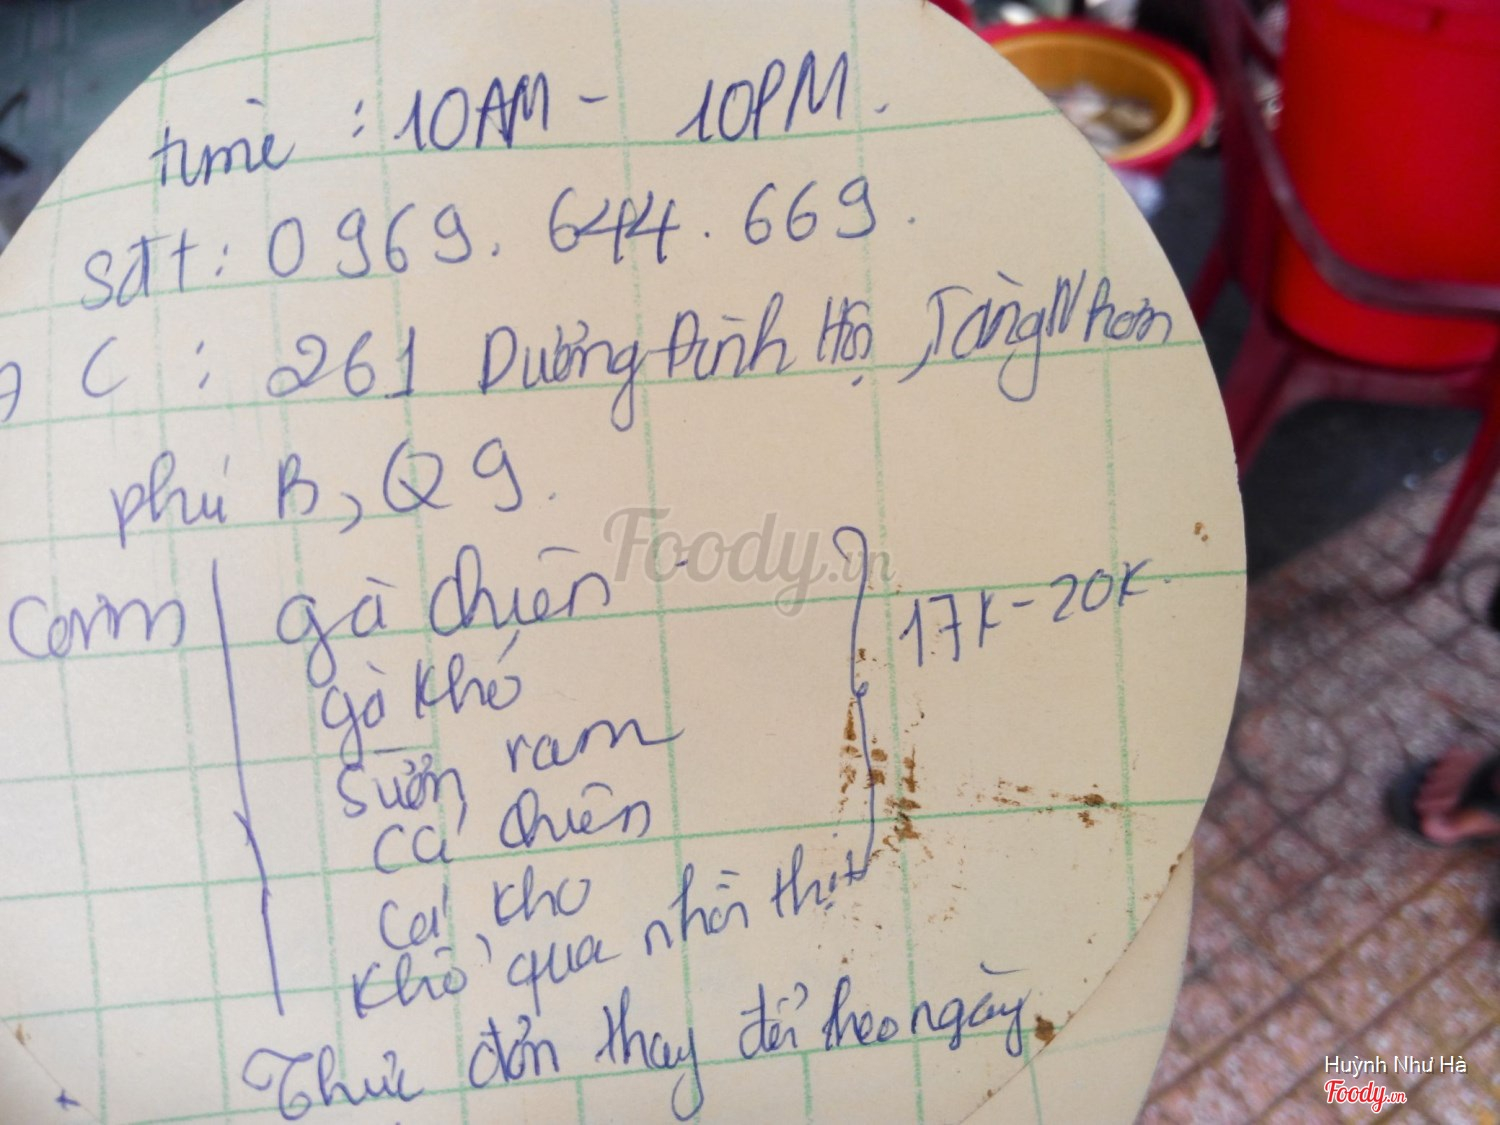 time : 10AM - 10PM.
sđt : 0969. 644. 669.
ĐC : 261 Dương Đình Hội, Tăng Nhơn
phú B, Q9.
Cơm
gà chiên
gà kho
sườn ram
cá chiên
cá kho
khổ qua nhồi thịt
17K - 20K
Thực đơn thay đổi theo ngày
Foody.vn
Huỳnh Như Hà
Foody.vn